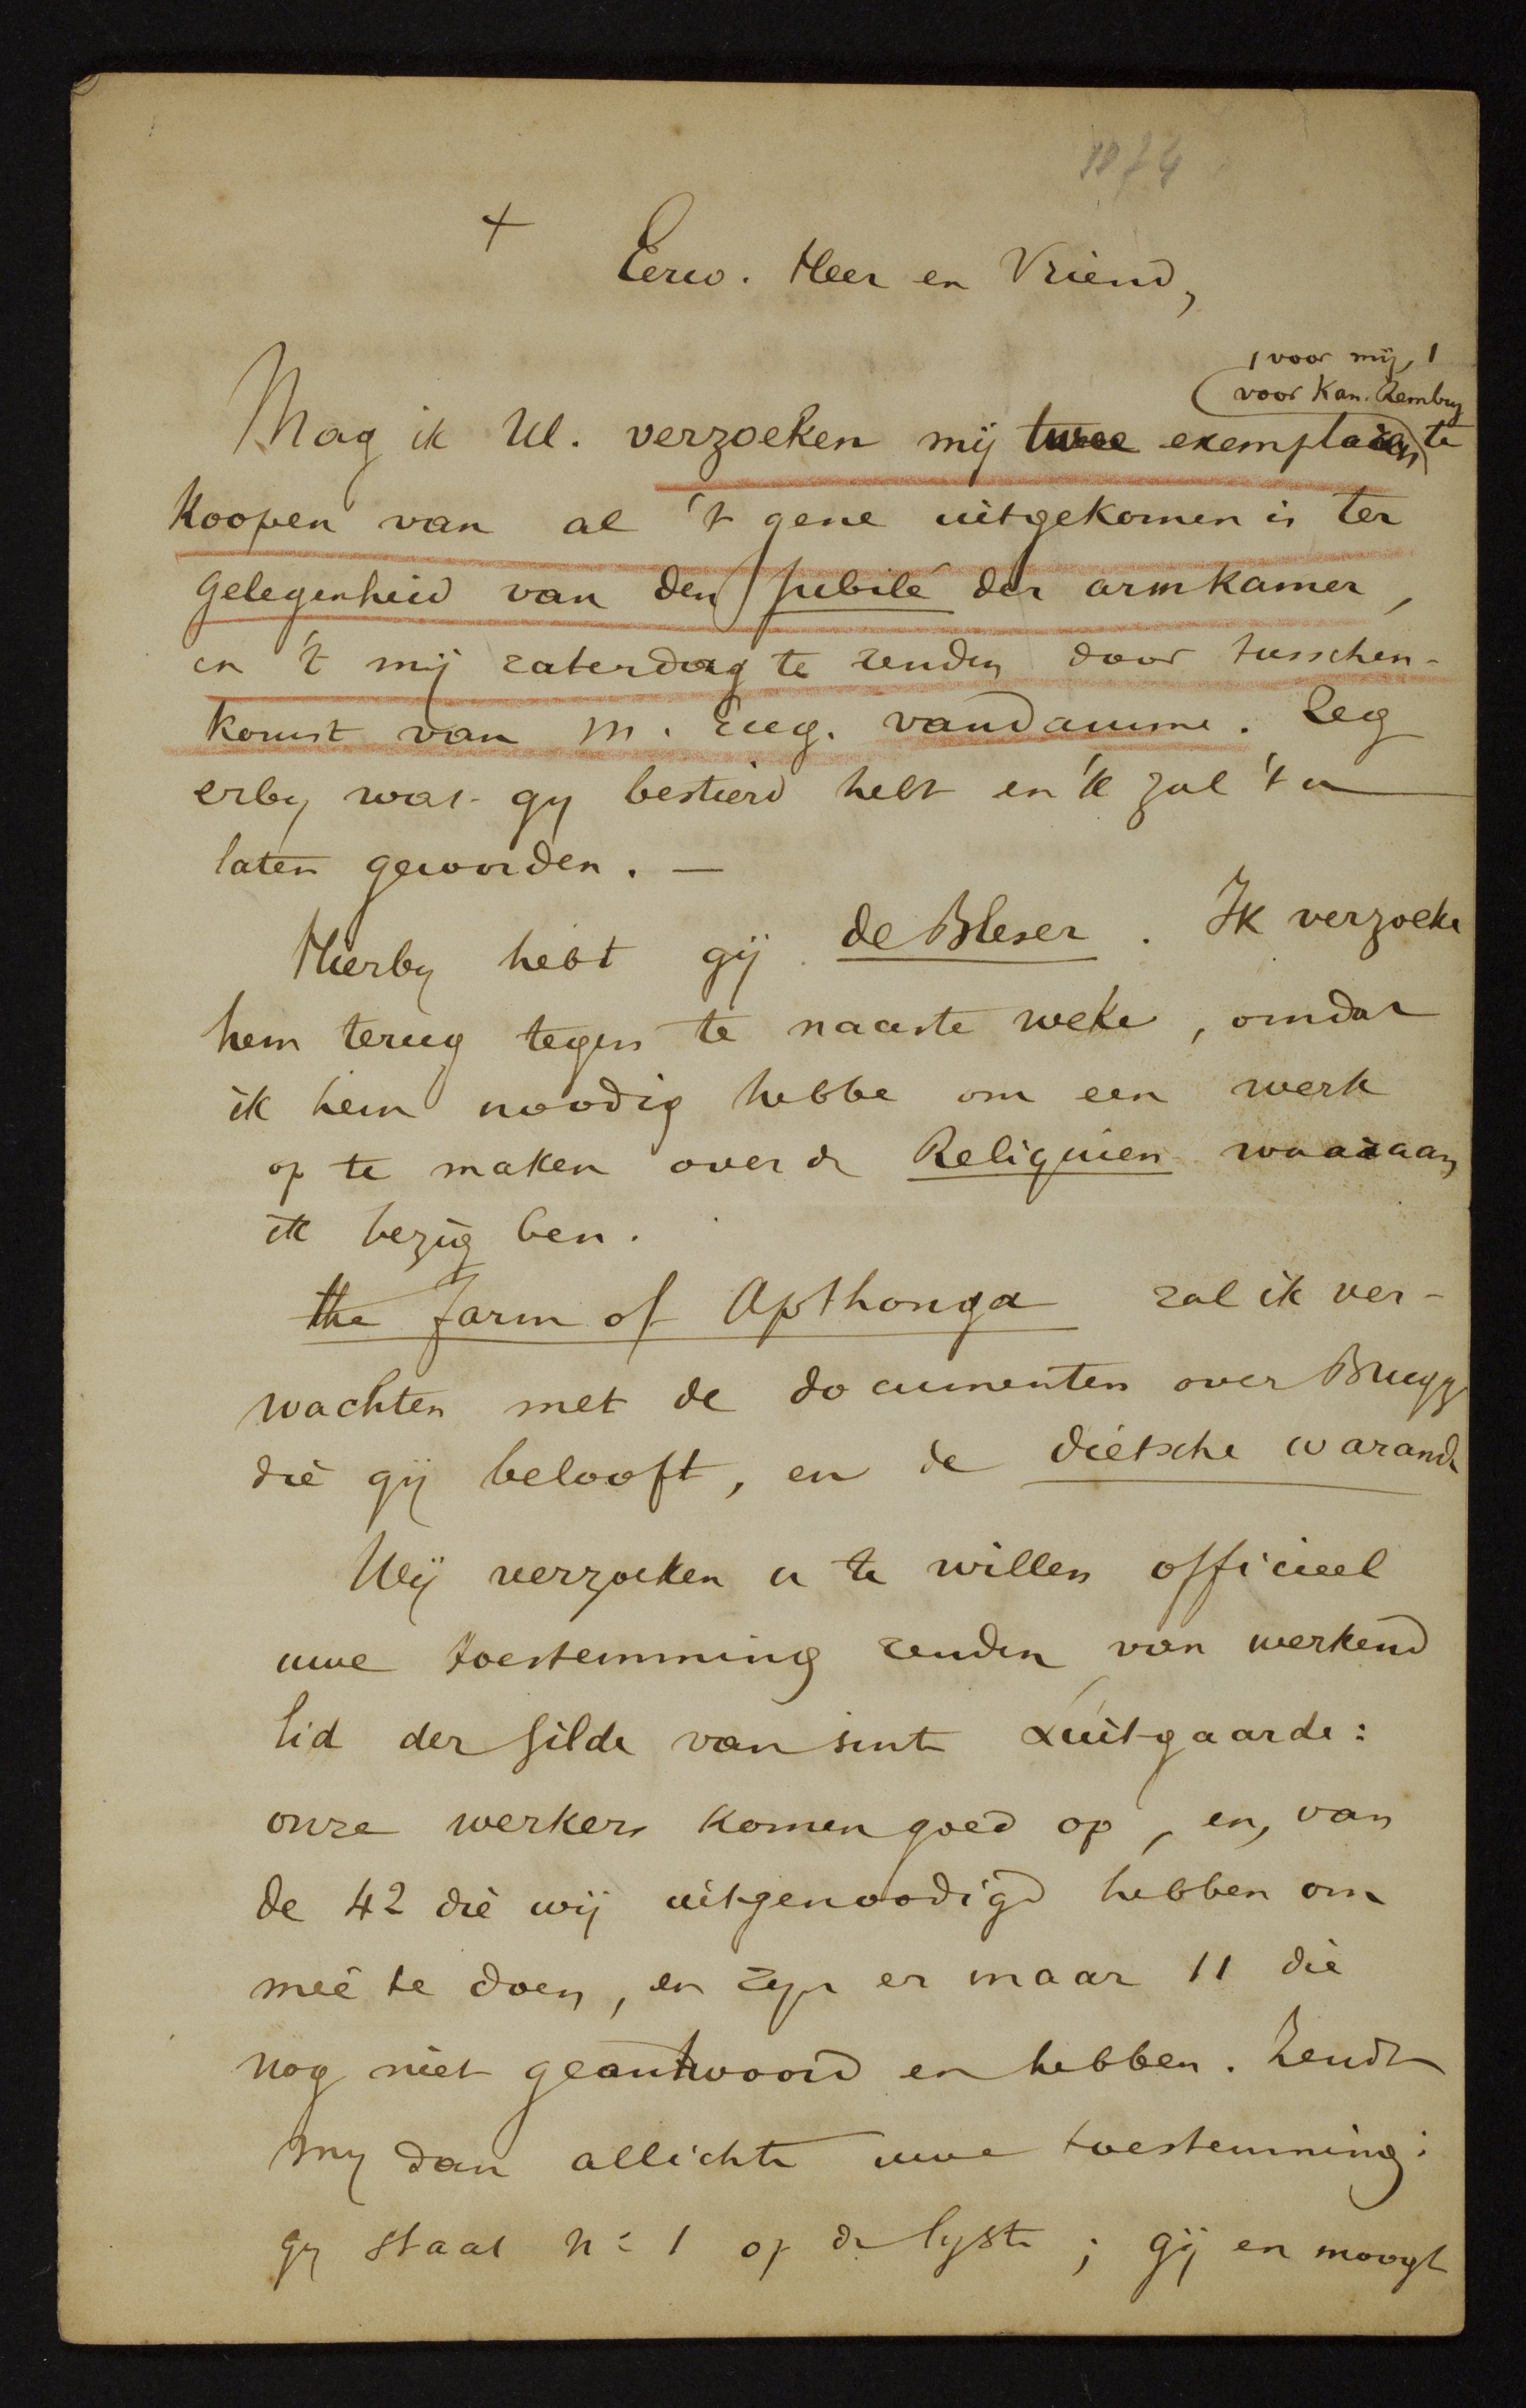 1874
+
Eerw. Heer en Vriend,
1 voor mij, 1
voor Kan. Rembry
Mag ik Ul. verzoeken mij twee exemplaren te
koopen van al 't gene uitgekomen is ter
gelegenheid van den Jubilé der armkamer,
en 't mij zaterdag te zenden door tusschen-
komst van M. Eug. vandamme. Leg
erby wat gy bestierd hebt en 'k zal 't u
laten geworden. —
Hierby hebt gij de Bleser. Ik verzoeke
hem terug tegen te naaste weke, omdat
ik hem noodig hebbe om een werk
op te maken over de Reliquien waaraan
ik bezig ben.
the farm of Apthonga zal ik ver-
wachten met de documenten over Brugge
die gij belooft, en de dietsche warande
Wij verzoeken u te willen officieel
uwe toestemming zenden van werkend
lid der gilde van sint Luitgaarde:
onze werkers komen goed op, en, van
de 42 die wij uitgenoodigd hebben om
meê te doen, en zyn er maar 11 die
nog niet geantwoord en hebben. Zendt
my dan allichte uwe toestemming:
gy staat n: 1 op de lyste; gij en moogt